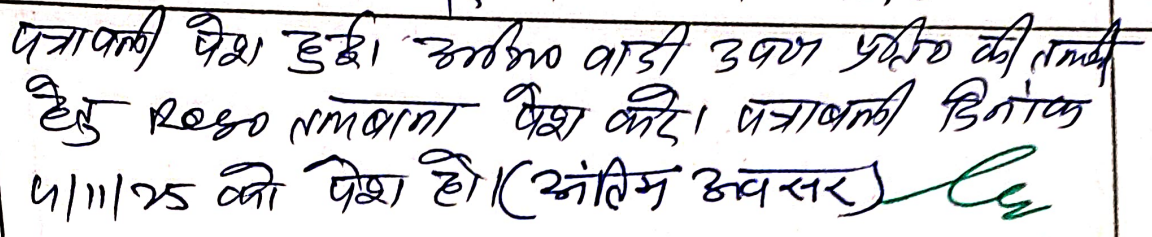 पत्रावली पेश हुई। अभि० वादी उपरा प्रति० की तलबी
हेतु Reg० तलबाना पेश करे। पत्रावली दिनांक
4/11/25 को पेश हो। (अंतिम अवसर)